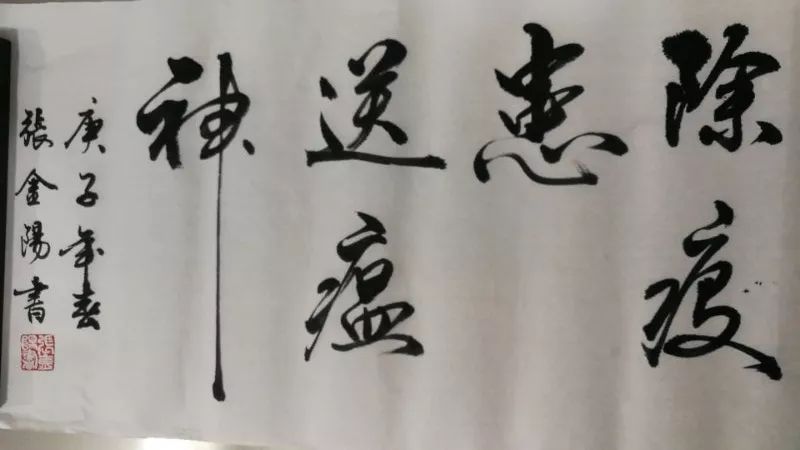 除疫
患
送瘟
神
庚子年春
張金陽書